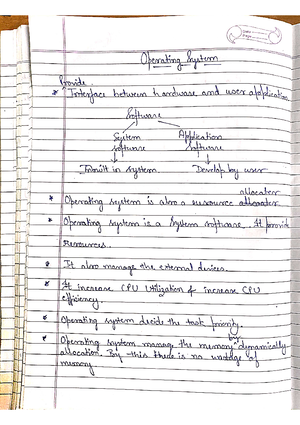 Operating System
Provide
* Interface between hardware and user application
Software
System Application
software Software
Inbuilt in system. Develop by user
allocater
* Operating system is also a resource allocater
* Operating system is a system software. It provide
resources.
* It also manage the external devices.
* It increase CPU Utilization & increase CPU
efficiency.
* Operating system decide the task priority.
* Operating system manage the memory by dynamically
allocation. By this there is no wastage of
memory.